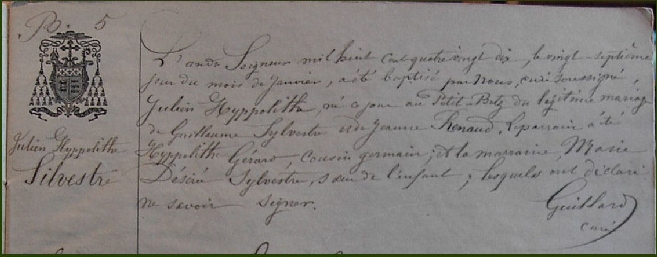 B. 5
L'an du Seigneur mil huit cent quatre vingt dix, le vingt septième
jour du mois de Janvier, a été baptisé par Nous, curé soussigné,
Julien Hyppolithe, né ce jour au Petit Betz du légitime mariage
de Guillaume Sylvestre et de Jeanne Renaud. Le parrain a été
Hyppolithe Gérard, cousin germain; et la marraine, Marie
Désiré Sylvestre, sœur de l'enfant; lesquels ont déclaré
ne savoir signer.
Guillard
curé
Julien Hyppolithe
Silvestre